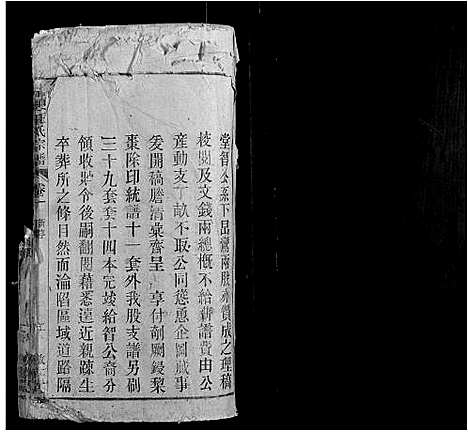 堂智公系下昆灣兩股永賀成之理稿
校閱及文錢兩總概不給薪譜費由公
產動支丁畝不取公同慫恿企圖臧事
爰開稿謄清彙齊呈 享付剞劂鋟梨
棗除印統譜十一套外我股支譜另刷
三十九套套十四本完竣給智公裔分
領收貯今後嗣翻閱藉悉遠近親疎生
卒葬所之條目然而淪陷區域道路隔
氏宗譜
卷一